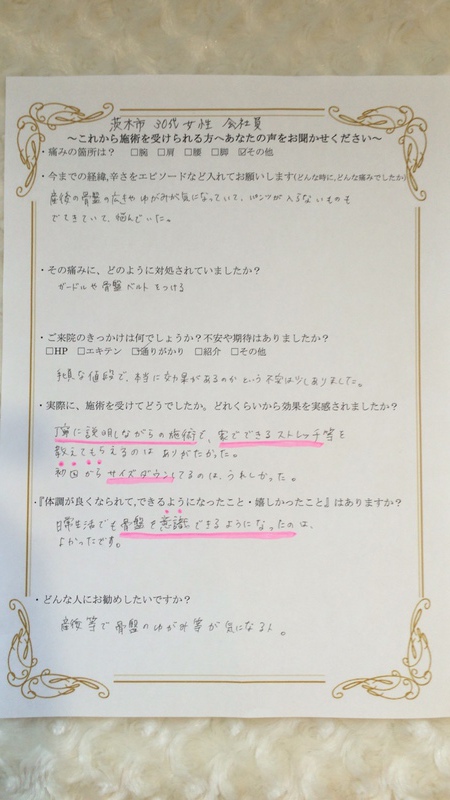 茨木市 30代 女性 会社員
～これから施術を受けられる方へあなたの声をお聞かせください～
・痛みの箇所は？ □腕 □肩 □腰 □脚 ☑その他
・今までの経緯,辛さをエピソードなど入れてお願いします(どんな時に,どんな痛みでしたか)
産後の骨盤の広さやゆがみが気になっていて、パンツが入らないものも
でてきていて、悩んでいた。
・その痛みに、どのように対処されていましたか？
ガードルや骨盤ベルトをつける
・ご来院のきっかけは何でしょうか？不安や期待はありましたか？
□HP □エキテン ☑通りがかり □紹介 □その他
手頃な値段で、本当に効果があるのかという不安は少しありました。
・実際に、施術を受けてどうでしたか。どれくらいから効果を実感されましたか？
丁寧に説明しながらの施術と、家でできるストレッチ等を
教えてもらえるのはありがたかった。
初回からサイズダウンしてるのは、うれしかった。
・『体調が良くなられて,できるようになったこと・嬉しかったこと』はありますか？
日常生活でも骨盤を意識できるようになったのは、
よかったです。
・どんな人にお勧めしたいですか？
産後等で骨盤のゆがみ等が気になる人。